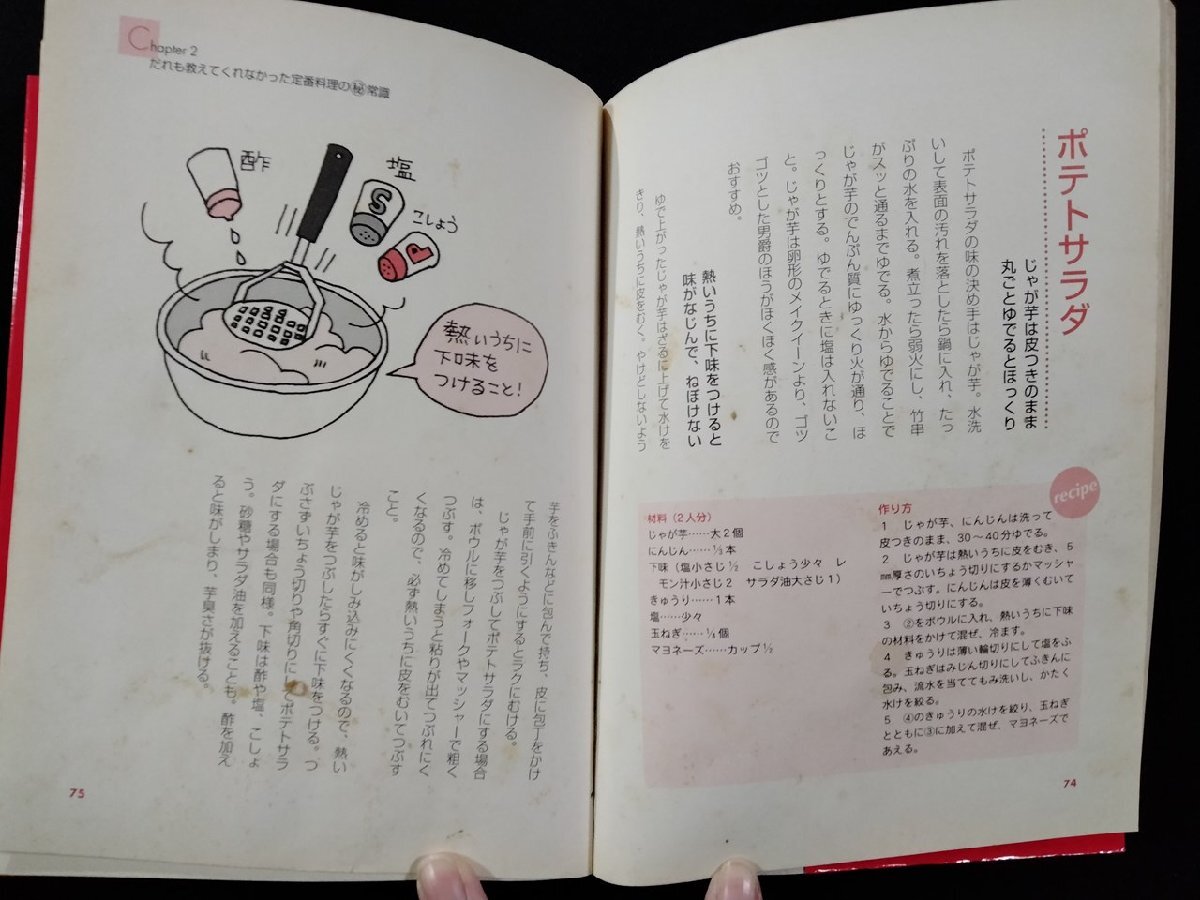 ポテトサラダ
じゃが芋は皮つきのまま
丸ごとゆでるとほっくり
ポテトサラダの味の決め手はじゃが芋。水洗
いして表面の汚れを落としたら鍋に入れ、たっ
ぷりの水を入れる。煮立ったら弱火にし、竹串
がスッと通るまでゆでる。水からゆでることで
じゃが芋のでんぷん質にゆっくり火が通り、ほ
っくりとする。ゆでるときに塩は入れないこ
と。じゃが芋は卵形のメイクイーンより、ゴツ
ゴツとした男爵のほうがほくほく感があるので
おすすめ。
熱いうちに下味をつけると
味がなじんで、ねぼけない
ゆで上がったじゃが芋はざるに上げて水けを
きり、熱いうちに皮をむく。やけどしないよう
recipe
材料（2人分）
じゃが芋……大2個
にんじん……⅓本
下味（塩小さじ½　こしょう少々　レ
モン汁小さじ2　サラダ油大さじ1）
きゅうり……1本
塩……少々
玉ねぎ……¼個
マヨネーズ……カップ½
作り方
1　じゃが芋、にんじんは洗って
皮つきのまま、30〜40分ゆでる。
2　じゃが芋は熱いうちに皮をむき、5
mm厚さのいちょう切りにするかマッシャ
ーでつぶす。にんじんは皮を薄くむいて
いちょう切りにする。
3　②をボウルに入れ、熱いうちに下味
の材料をかけて混ぜ、冷ます。
4　きゅうりは薄い輪切りにして塩をふ
る。玉ねぎはみじん切りにしてふきんに
包み、流水を当ててもみ洗いし、かたく
水けを絞る。
5　④のきゅうりの水けを絞り、玉ねぎ
とともに③に加えて混ぜ、マヨネーズで
あえる。
74
Chapter 2
だれも教えてくれなかった定番料理の㊙常識
酢
塩
S
こしょう
熱いうちに
下味を
つけること!
芋をふきんなどに包んで持ち、皮に包丁をかけ
て手前に引くようにするとラクにむける。
じゃが芋をつぶしてポテトサラダにする場合
は、ボウルに移しフォークやマッシャーで粗く
つぶす。冷めてしまうと粘りが出てつぶれにく
くなるので、必ず熱いうちに皮をむいてつぶす
こと。
冷めると味がしみ込みにくくなるので、熱い
じゃが芋をつぶしたらすぐに下味をつける。つ
ぶさずいちょう切りや角切りにしてポテトサラ
ダにする場合も同様。下味は酢や塩、こしょ
う。砂糖やサラダ油を加えることも。酢を加え
ると味がしまり、芋臭さが抜ける。
75